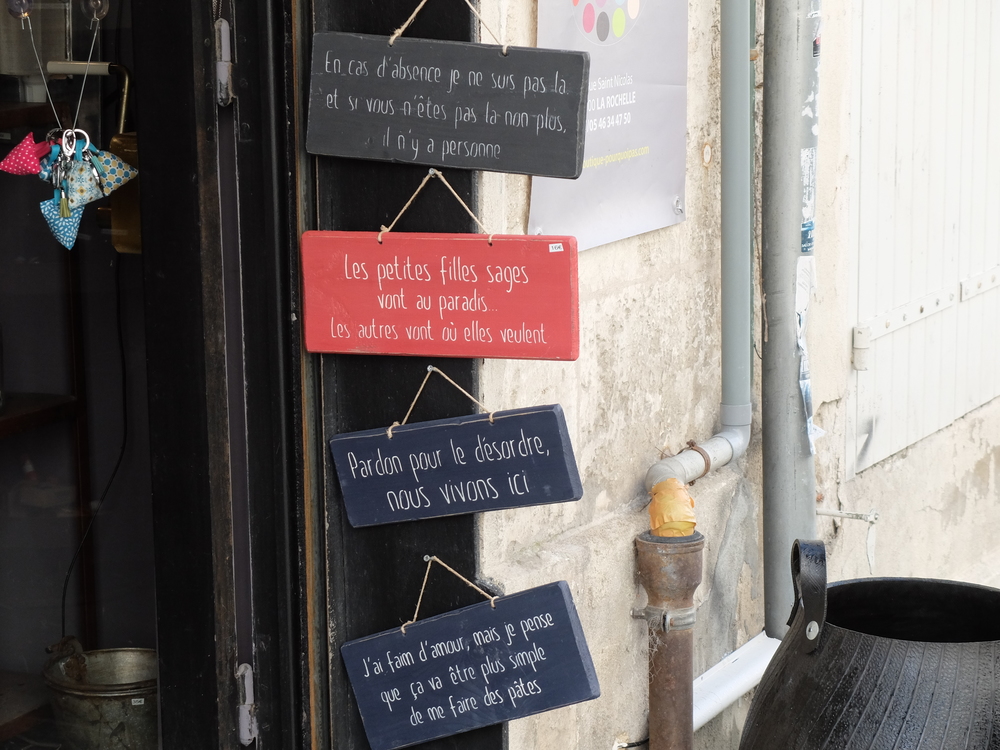 En cas d'absence je ne suis pas la
et si vous n'êtes pas la non plus,
il n'y a personne
ue Saint Nicolas
00 LA ROCHELLE
05 46 34 47 50
Les petites filles sages
vont au paradis...
Les autres vont où elles veulent
Pardon pour le désordre,
nous vivons ici
J'ai faim d'amour, mais je pense
que ça va être plus simple
de me faire des pâtes